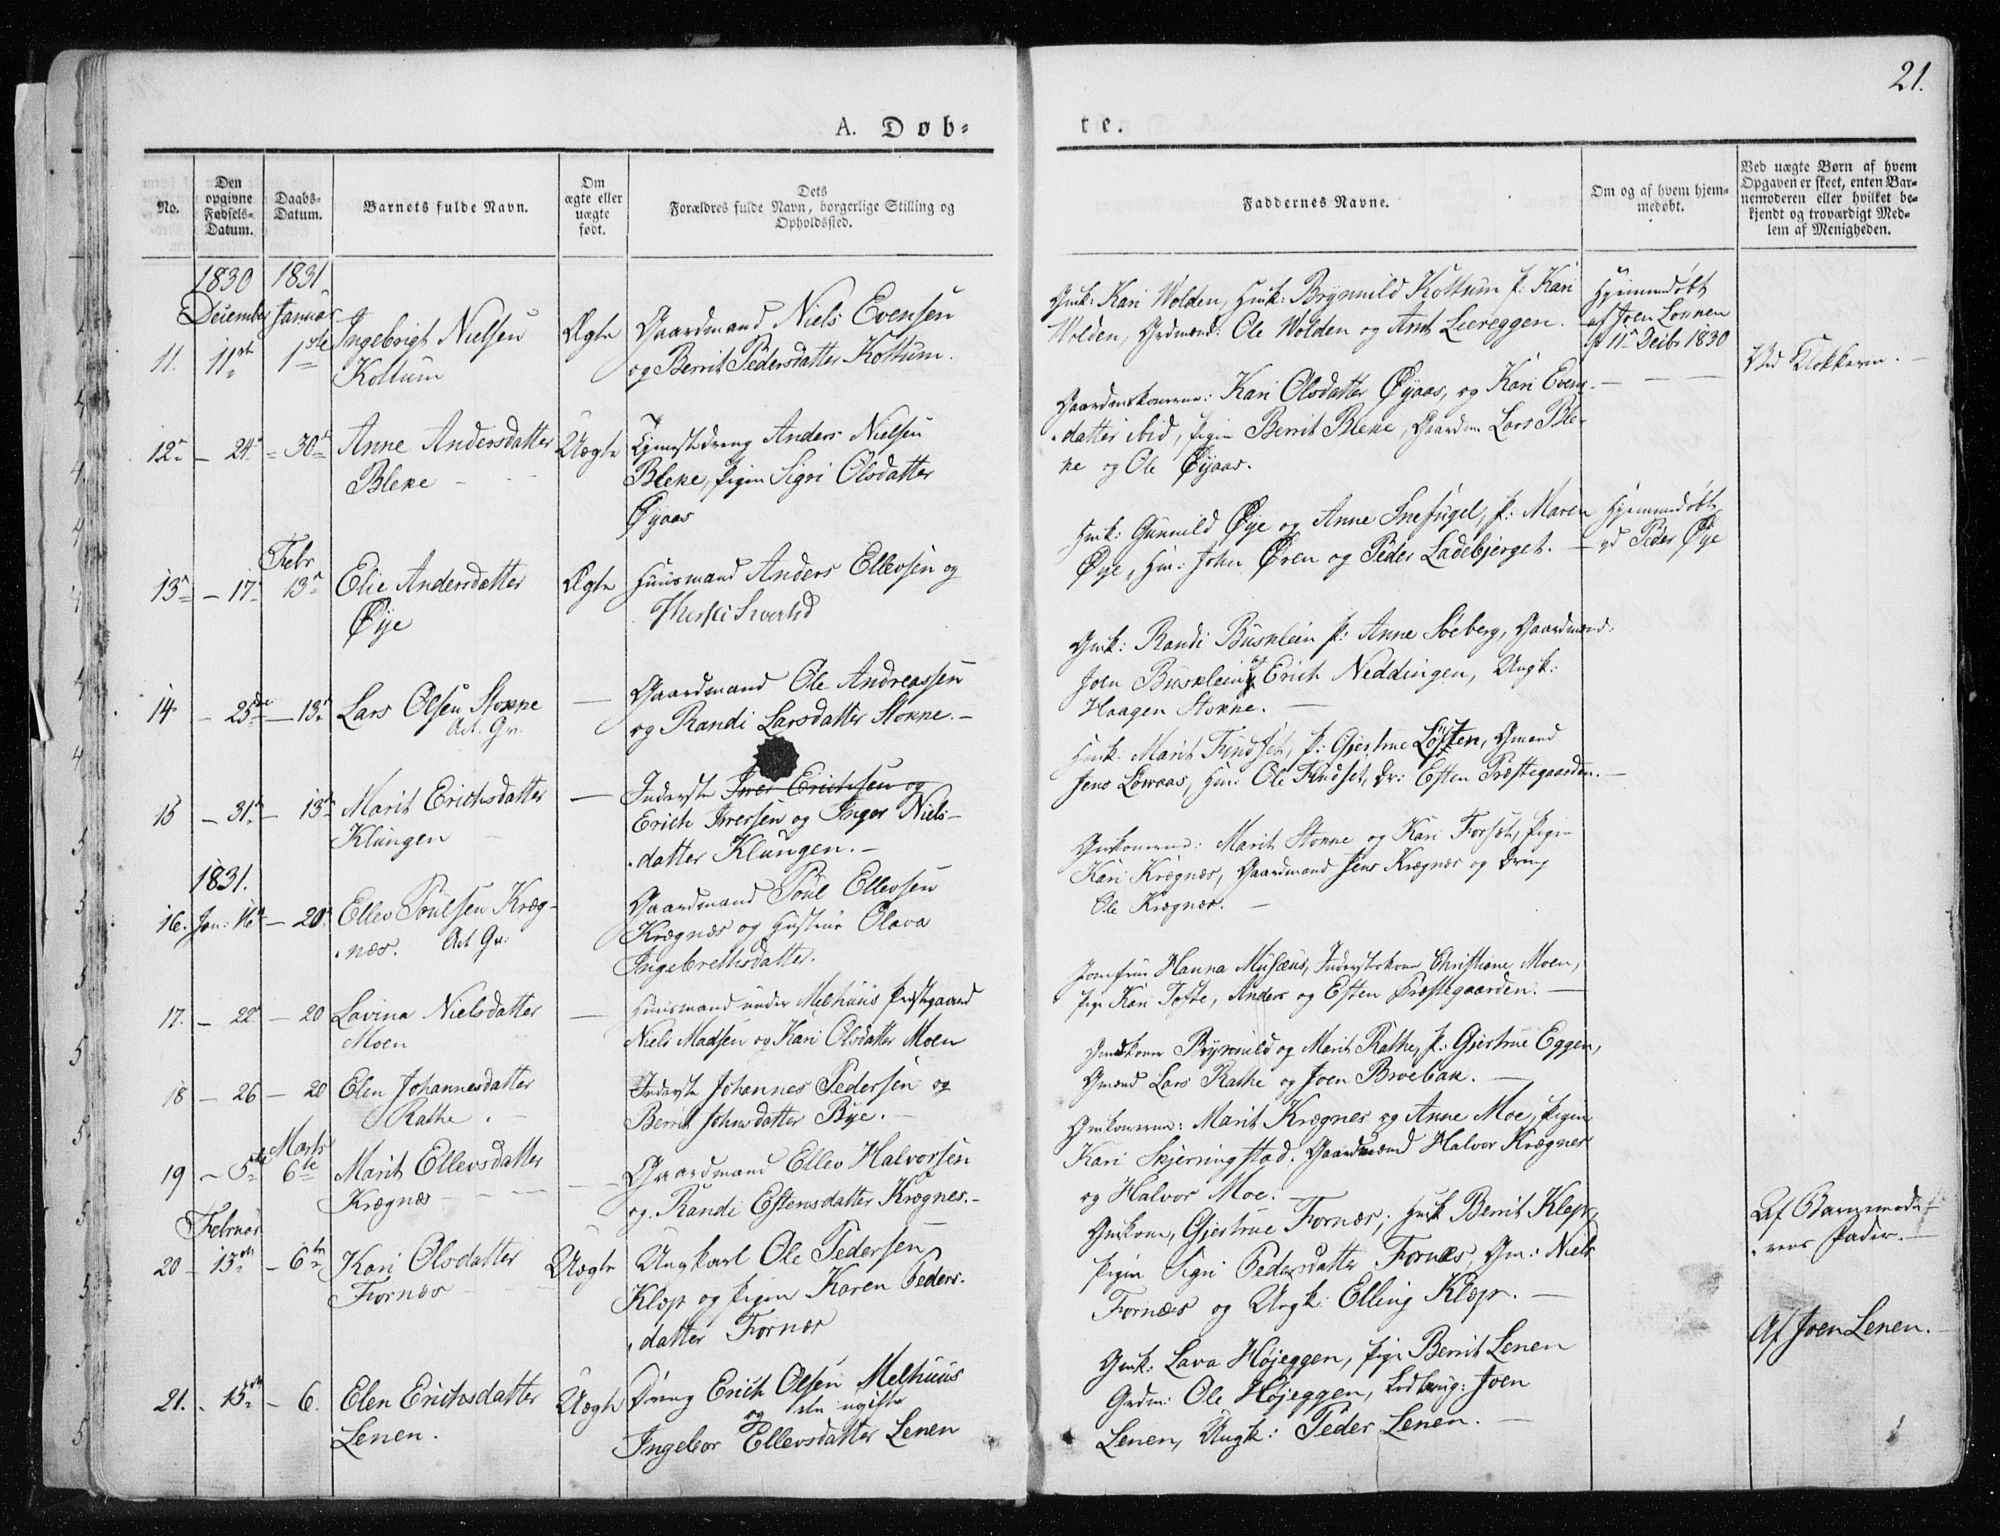 21.
A. Døb-
te.
No.
Den opgivne Fødsels-Datum.
Daabs-Datum.
Barnets fulde Navn.
Om ægte eller uægte født.
Dets Forældres fulde Navn, borgerlige Stilling og Opholdssted.
Faddernes Navne.
Om og af hvem hjem-medøbt.
Ved uægte Børn af hvem Opgaven er skeet, enten Bar-nemoderen eller hvilket be-kjendt og troværdigt Med-lem af Menigheden.
1830 1831
December Januar
11. 11te 1ste Ingebrigt Nielsen
Kottum
Ægte
Gaardmand Niels Evensen
og Berrit Pedersdatter Kottum.
Gmk: Kari Wolden, Hmk: Brynnild Kottum P: Kari
Wolden, Grdmænd: Ole Wolden og Arnt Leereggen.
Hjemmedøbt
af Joen Lonnen
11 Decbr 1830
12 - 24 - 30 Anne Andersdatter
Bleke
Uægte
Tjenestedreng Anders Nielsen
Bleke, Pigen Sigri Olsdatter
Øyaas
Gaardmkonerne: Kari Olsdatter Øyaas, og Kari Evens-
datter ibid, Pigen Berrit Bleke, Gaardm: Lars Ble-
ke og Ole Øyaas.
Ved Klokkeren.
Febr
13 - 17 13 Elie Andersdatter
Øye
Ægte
Huusmand Anders Ellevsen og
Hmk: Gunnild Øye og Anne Snefugel, P: Maren
Øye, Hm: John Øren og Peder Ladebjerget.
Hjemmedøbt
ved Peder Øye
14 - 25 - 13 Lars Olsen Stokke
Act. Gr.
Gaardmand Ole Andreassen
og Randi Larsdatter Stokke.
Gmk: Randi Busklein P: Anne Søeberg, Gaardmænd:
Joen Busklein og Erich Neddingen, Ungk:
Haagen Stokke.
15 - 31 - 13 Marit Erichsdatter
Klungen
Inderste Iver Erichsen og
Erich Iversen og Inger Niels-
datter Klungen.
Hmk: Marit Tyndset, P: Gjertrue Løften, Gmand
Jens Løvaas, Hm: Ole Tyndset, Dr: Esten Præstegaarden.
1831.
16. Jan: 16 - 20 Ellev Poulsen Kræg-
næs. Act Gr:
Gaardmand Poul Ellevsen
Krægnæs og Hustrue Olava
Ingebrethsdatter.
Gmkonerne: Marit Stokke og Kari Forset, Pigen
Kari Krægnæs, Gaardmand Jens Krægnæs og Dreng
Ole Krægnæs.
17. - 22 - 20 Lavina Nielsdatter
Moen
Huusmand under Melhuus Præstegaard
Niels Madsen og Kari Olsdatter Moen
Jomfrue Hanna Musæus, Inderstekone Christiane Moen,
Pige Kari Tofte, Anders og Esten Præstegaarden.
18 - 26 - 20 Elen Johannesdatter
Rathe
Inderste Johannes Pedersen og
Berrit Johnsdatter Bye.
Gmkone Brynnild og Marit Rathe, P: Gjertrue Eggen,
Gmænd Lars Rathe og Joen Broebak.
Marts
19 - 5 6te Marit Ellevsdatter
Krægnæs
Gaardmand Ellev Halvorsen
og Randi Estensdatter Krægnes.
Gmkonerne: Marit Krægnes og Anne Moe, Pigen
Kari Skjerringstad. Gaardmænd Halvor Krægnes
og Halvor Moe.
Februar
20 - 13 - 6te Kari Olsdatter
Fornæs
Uægte
Ungkarl Ole Pedersen
Klæp og Pigen Karen Peders-
datter Fornæs
Gmkone, Gjertrue Fornæs, Hmk Berrit Klæp,
Pigen Sigri Pedersdatter Fornæs, Gm: Niels
Fornæs og Ungk: Elling Klæp.
Af Barnemode-
rens Fader.
21. - 15 - 6. Elen Erichsdatter
Lenen.
Uægte
Dreng Erich Olsen Melhuus
og den ugifte
Ingebor Ellevsdatter Lenen
Gmk: Lava Højeggen, Pige Berrit Lenen
Grdm: Ole Højeggen, Joen
Lenen, Ungk: Peder Lenen.
Af Joen Lenen.